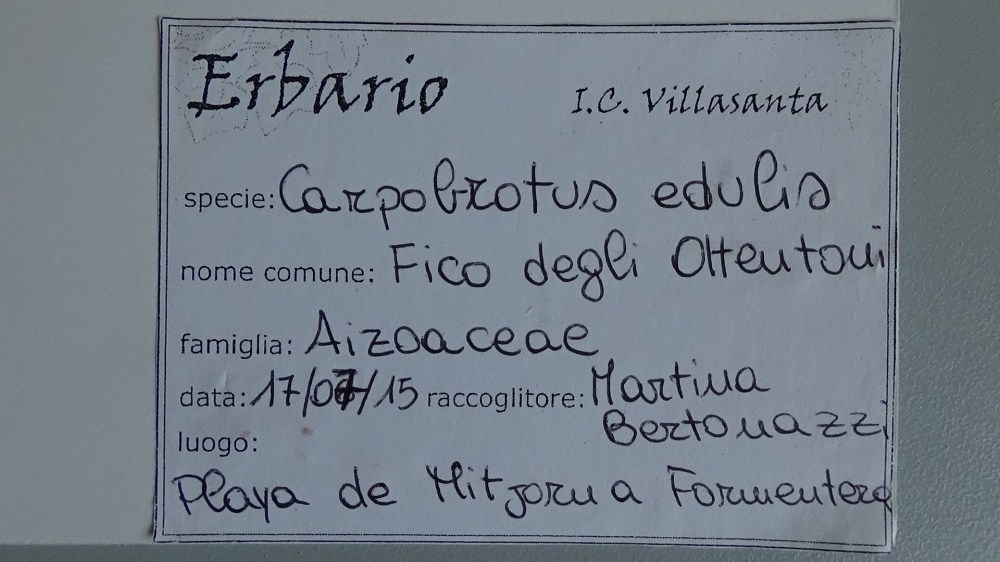 Erbario I.C. Villasanta
specie: Carpobrotus edulis
nome comune: Fico degli Ottentoni
famiglia: Aizoaceae
data: 17/07/15 raccoglitore: Martina
Bertonazzi
luogo:
Playa de Mitjorn a Formentera